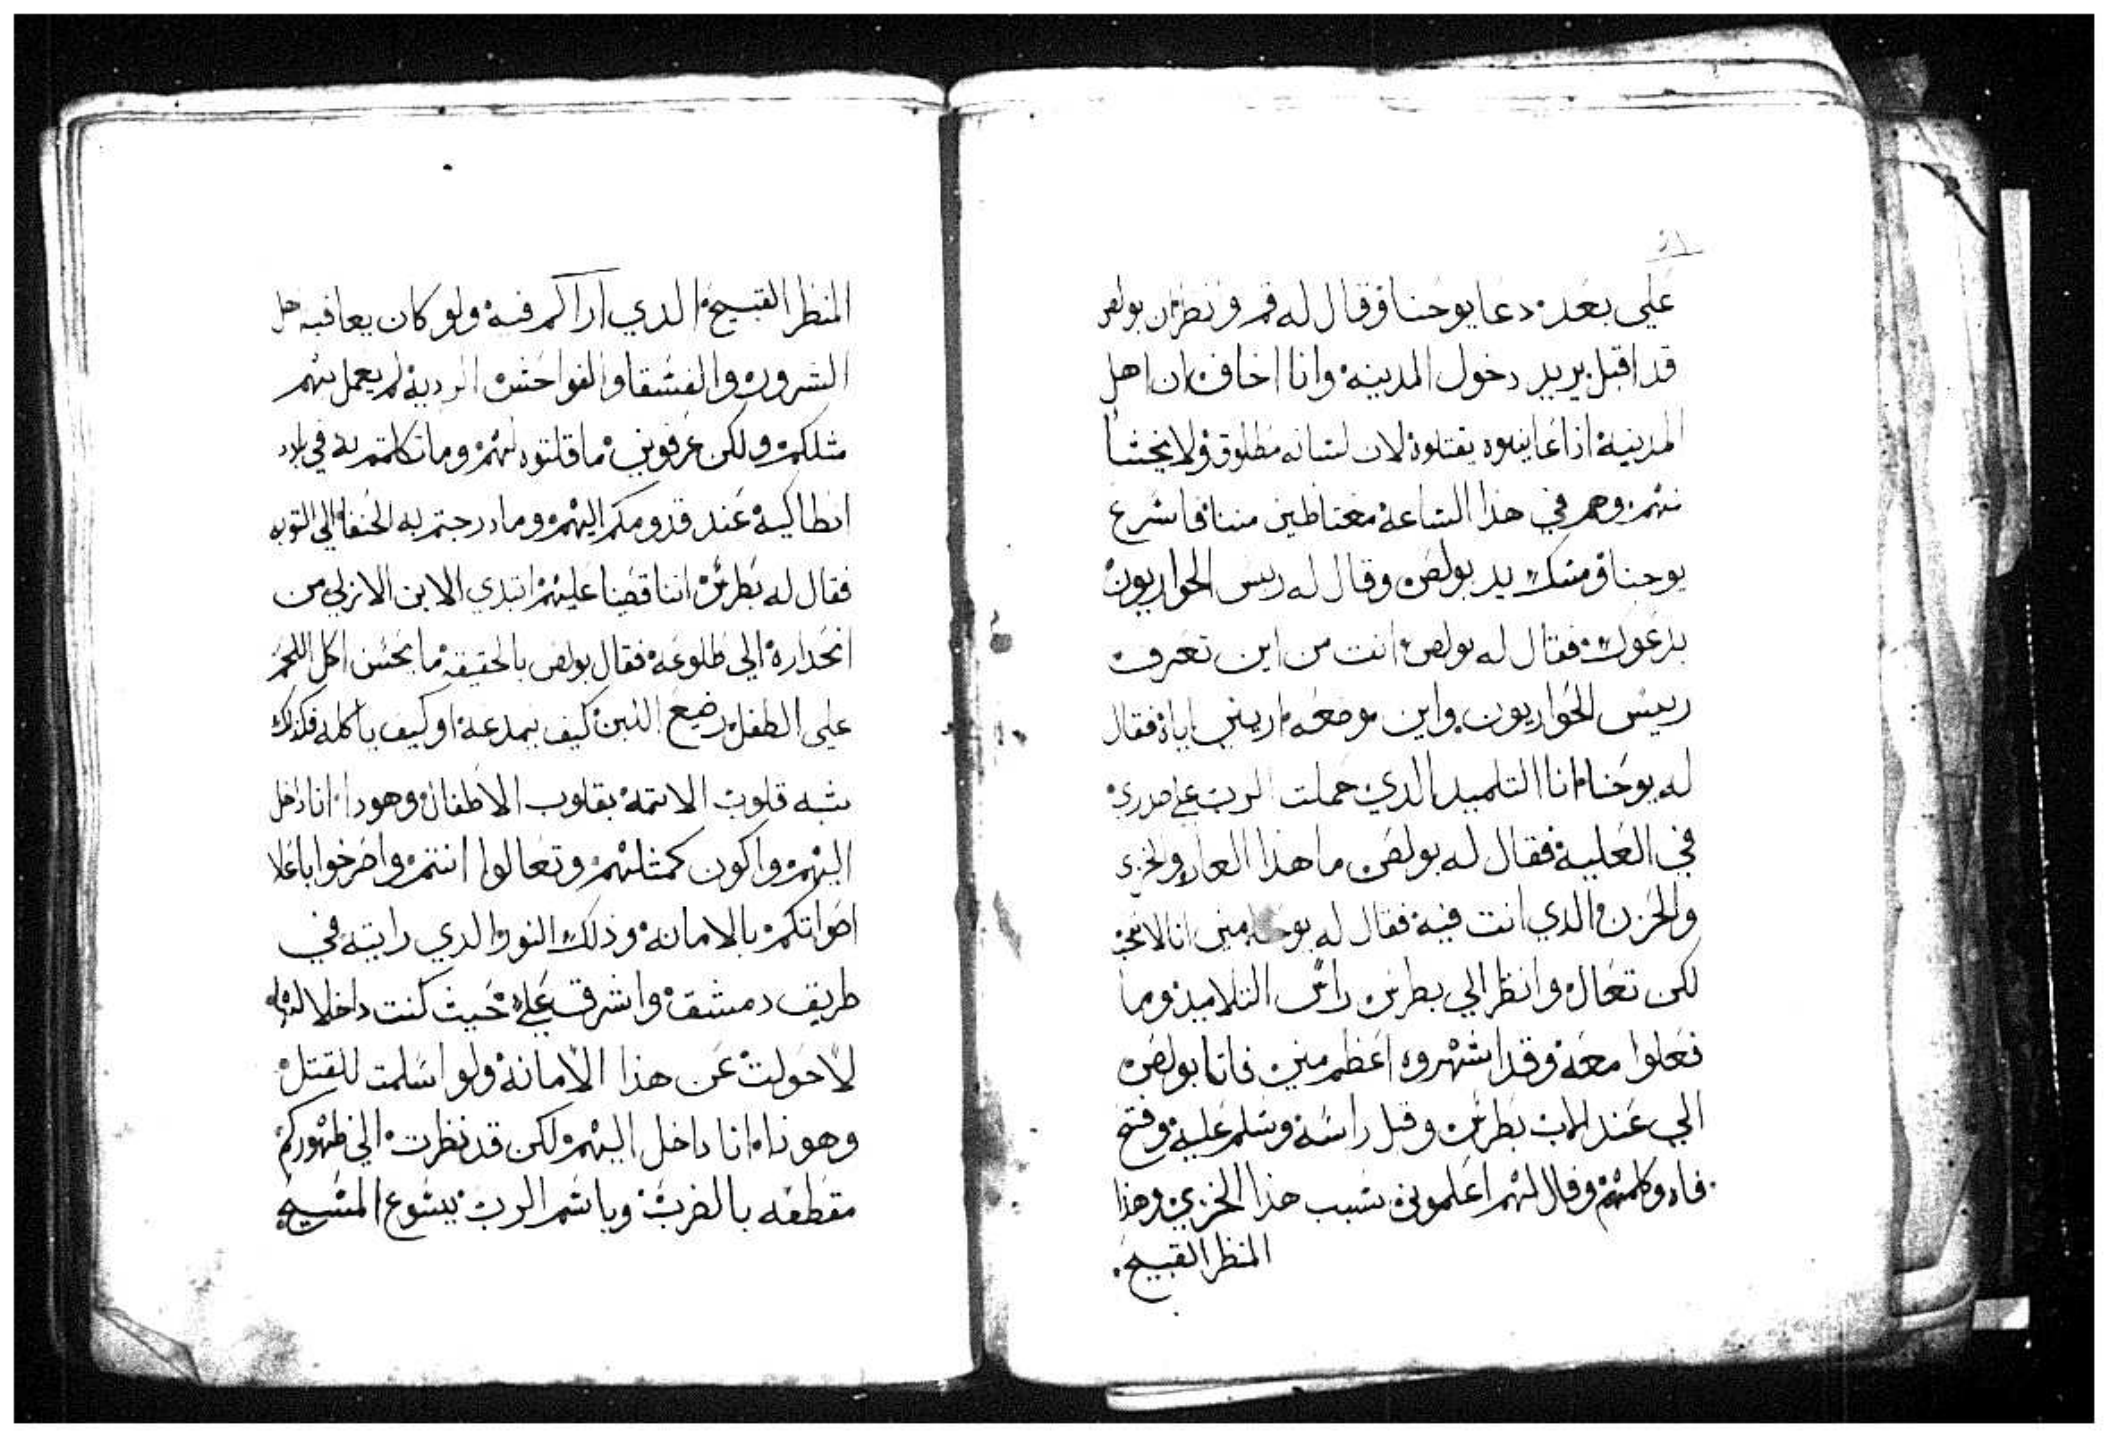 علي بعد دعا يوحنا وقال له قم ونظر ان بولص
قد اقبل يريد دخول المدينة وانا اخاف ان اهل
المدينة اذا عاينوه يقتلوه لان لسانه مطلوق ولا يخشا
منهم وهم في هذا الساعة مغتاظين مننا فاسرع
يوحنا ومسك يد بولص وقال له ريس الحواريون
يدعوك فقال له بولص انت من اين تعرف
رييس الحواريون واين موضعه اريني اياه فقال
له يوحنا انا التلميد الدي حملت الرب علي صدري
في العلية فقال له بولص ما هذا العار والخزي
والحزن الدي انت فيه فقال له يوحنا مني انا لا تعجب
لكن تعال وانظر الي بطرس راس التلاميذ وما
فعلوا معه وقد اشهروه اعظم مني فاتا بولص
الي عند الاب بطرس وقبل راسه وسلم عليه وفتح
فاه وكلمهم وقال لهم اعلموني بسبب هذا الخزي وهذا
المنظر القبيح
المنظر القبيح الدي اراكم فيه ولو كان يعاقبه هل
الشرور والفسقا والفواحش الردية لم يعمل بهم
مثلكم ولكن عرفوني ما قلتوه لهم وما تكلمتم به في بلاد
انطاكية عند قدومكم اليهم وما درجتم به الحنفا الي التوبه
فقال له بطرس اننا قصينا عليهم ابتدي الابن الازلي من
انحداره الي طلوعه فقال بولص بالحقيقة ما يحسن اكل اللحم
علي الطفل رضيع اللبن كيف يمدغه او كيف ياكله فكذلك
شبه قلوب الاتمة بقلوب الاطفال وهودا انا داخل
اليهم واكون كمثلهم وتعالوا انتم واصرخوا باعلا
اصواتكم بالامانة وذلك النور الدي رايته في
طريق دمشق واشرق علي حيث كنت داخلا اليها
لا حولت عن هذا الامانة ولو اسلمت للقتل
وهوذاه انا داخل اليهم لكن قد نظرت الي ظهوركم
مقطعه بالضرب وباسم الرب يسوع المسيح